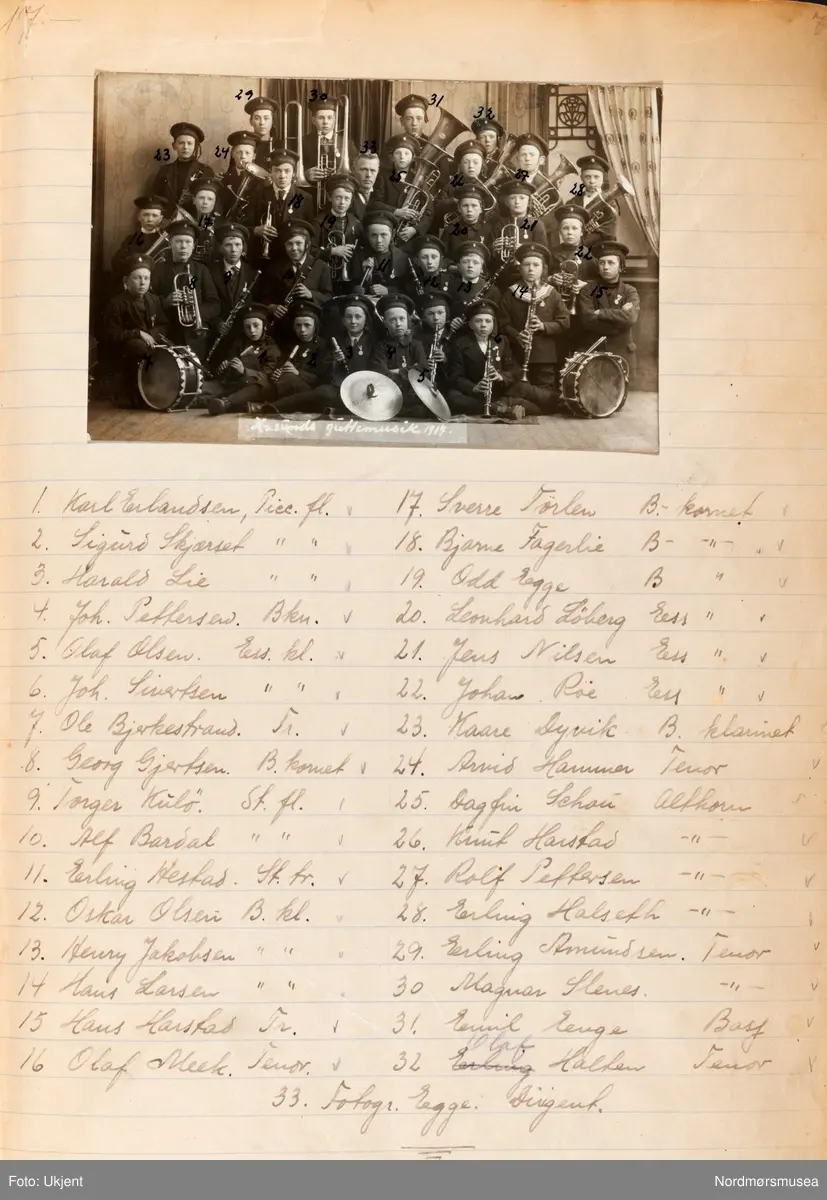 17.
29 30 31 32
23 24 33 25 26 27 28
16 17 18 19 20 21 22
8 9 10 11 12 13 14 15
7 1 2 3 4 5 6
Kr.sunds guttemusik 1919.
1. Karl Erlandsen, Picc. fl. v
2. Sigurd Skjærset " " v
3. Harald Lie " " v
4. Joh. Pettersen. Bkn. v
5. Olaf Olsen. Ess. kl. v
6. Joh. Sivertsen " " v
7. Ole Bjerkestrand. Tr. v
8. Georg Gjertsen. B. kornet v
9. Torger Kulö. St. fl. v
10. Alf Bardal " " v
11. Erling Hestad. St. tr. v
12. Oskar Olsen B. kl. v
13. Henry Jakobsen " " v
14 Hans Larsen " "
15 Hans Harstad Tr. v
16 Olaf Meek. Tenor. v
17. Sverre Tørlen B- kornet v
18. Bjarne Fagerlie B- -"- v
19. Odd Egge B " v
20. Leonhard Löberg Ess " v
21. Jens Nilsen Ess " v
22. Johan Röe Ess " v
23. Kaare Dyvik B. klarinet
24. Arvid Hammer Tenor v
25. Dagfin Schau Althorn v
26. Knut Harstad -"- v
27. Rolf Pettersen -"- v
28. Erling Halseth -"- v
29. Erling Amundsen. Tenor v
30 Magnar Stenes. -"- v
31. Emil Enge Bass v
32 Erling Olaf Halten Tenor v
33. Fotogr. Egge. Dirigent.
Foto: Ukjent
Nordmørsmusea